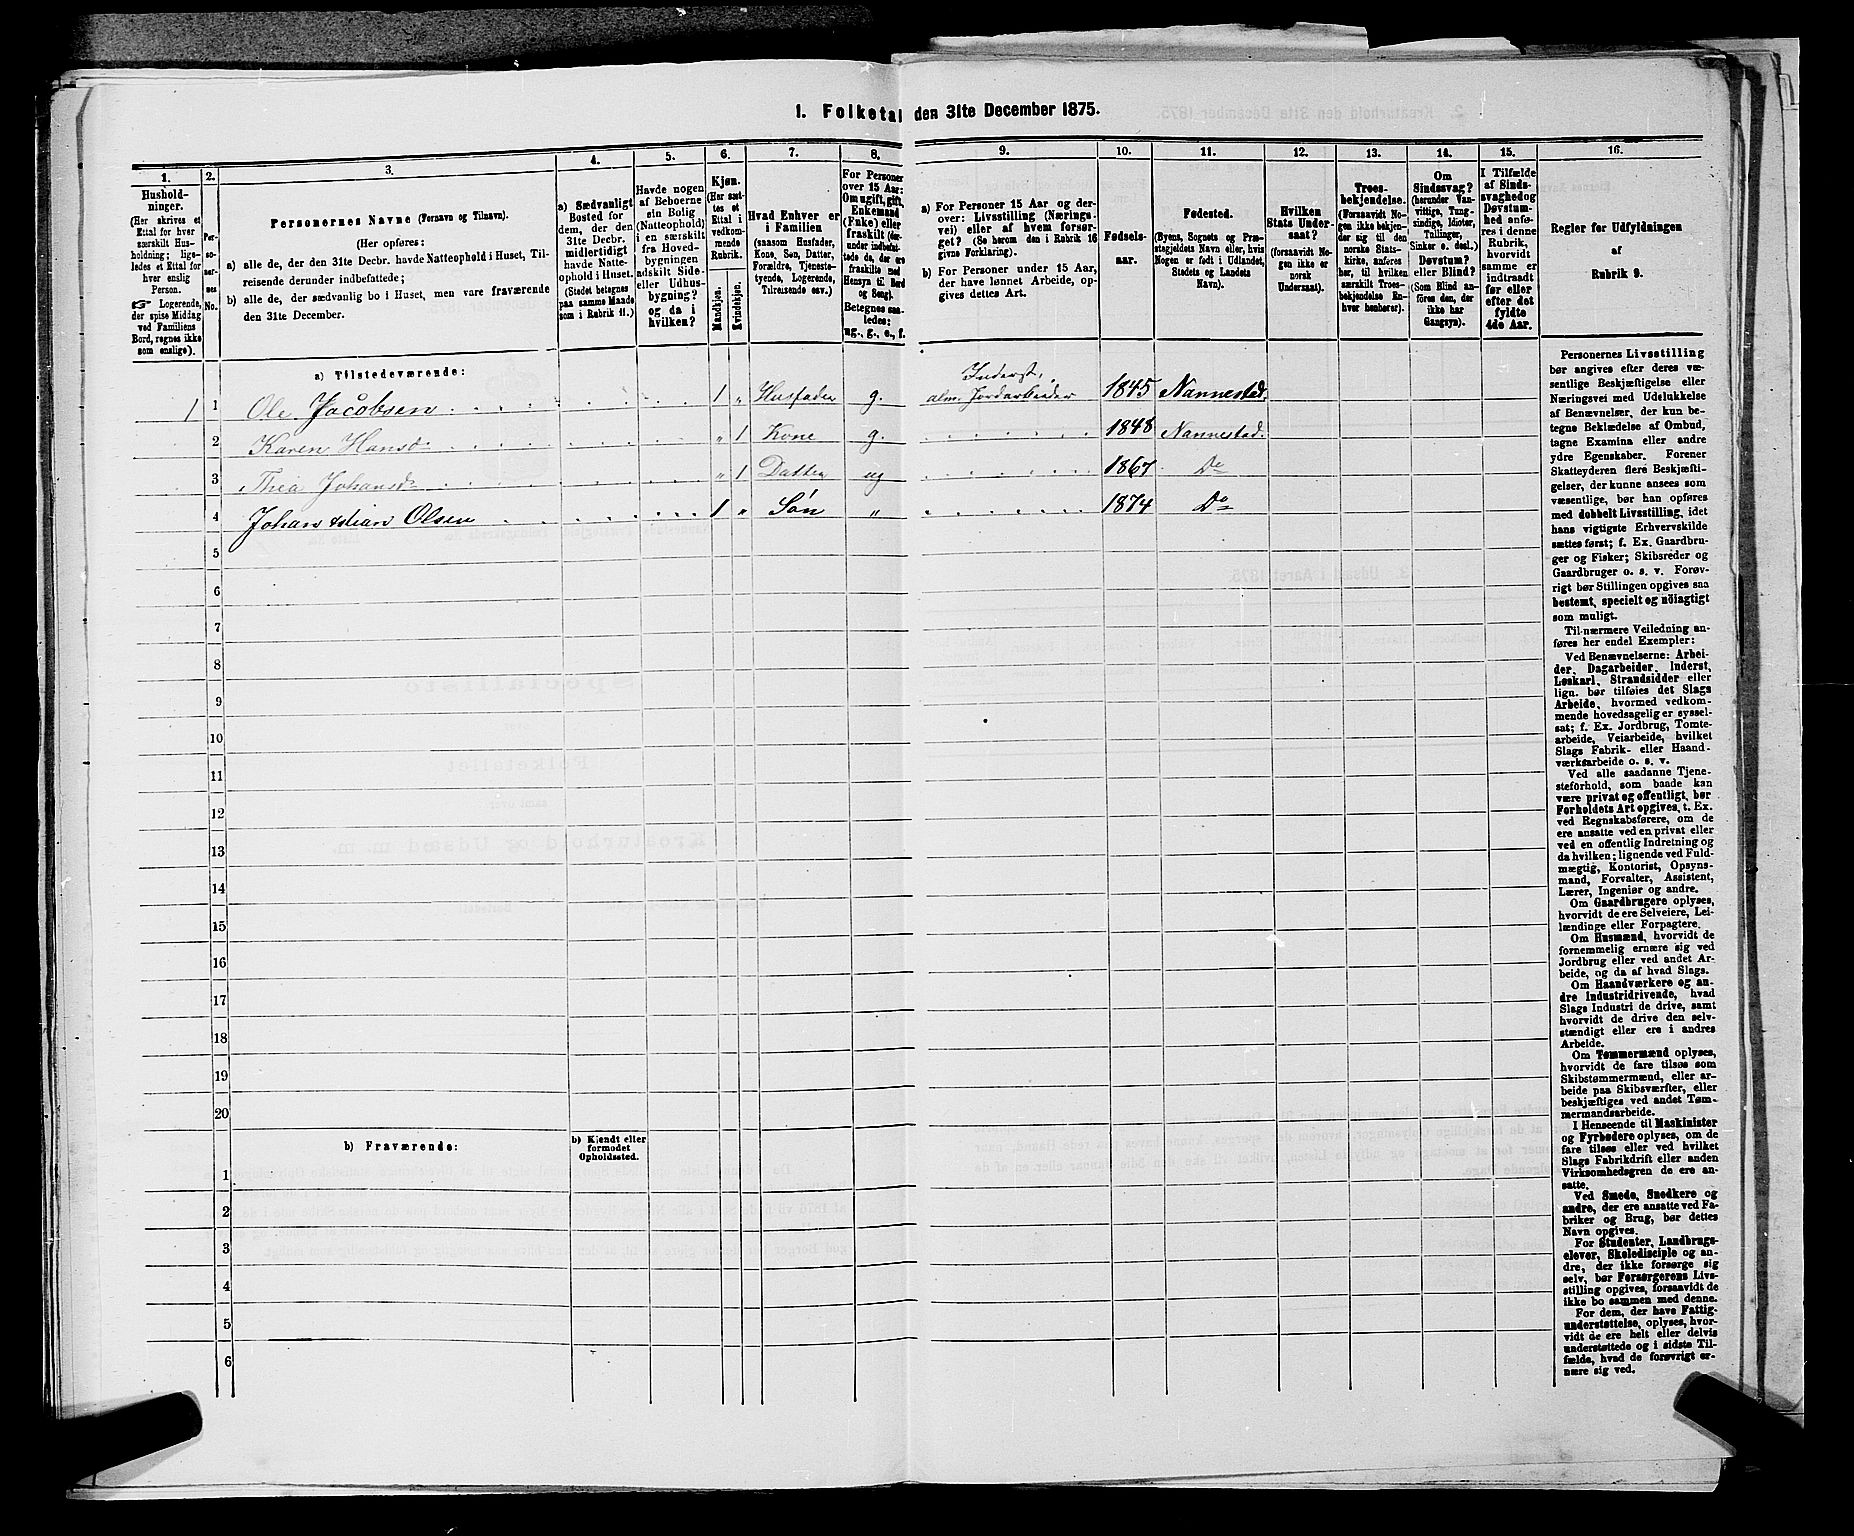 1. Folketal den 31te December 1875.
1. 2. 3. 4. 5. 6. 7. 8. 9. 10. 11. 12. 13. 14. 15. 16.
Hushold-
ninger.
(Her skrives et
Ettal for hver
særskilt Hus-
holdning; lige-
ledes et Ettal for
hver enslig
Person.
☞ Logerende,
der spise Middag
ved Familiens
Bord, regnes ikke
som enslige).
Per-
so-
ner-
nes
No.
Personernes Navne (Fornavn og Tilnavn).
(Her opføres:
a) alle de, der den 31te Decbr. havde Natteophold i Huset, Til-
reisende derunder indbefattede;
b) alle de, der sædvanlig bo i Huset, men vare fraværende
den 31te December.
a) Sædvanligt
Bosted for
dem, der den
31te Decbr.
midlertidigt
havde Natte-
ophold i Huset.
(Stedet betegnes
paa samme Maade
som i Rubrik 11.)
Havde nogen
af Beboerne
sin Bolig
(Natteophold)
i en særskilt
fra Hoved-
bygningen
adskilt Side-
eller Udhus-
bygning?
og da i
hvilken?
Kjøn.
(Her sæt-
tes et
Ettal i
vedkom-
mende
Rubrik.
Mandkjøn.
Kvindekjøn.
Hvad Enhver er
i Familien
(saasom Husfader,
Kone, Søn, Datter,
Forældre, Tjeneste-
tyende, Logerende,
Tilreisende osv.).
For Personer
over 15 Aar:
Om ugift, gift,
Enkemand
(Enke) eller
fraskilt (der-
under indbefat-
tede de, der ere
fraskilte med
Hensyn til Bord
og Seng).
Betegnes saa-
ledes:
ug., g., e., f.
a) For Personer 15 Aar og der-
over: Livsstilling (Nærings-
vei) eller af hvem forsør-
get? (Se herom den i Rubrik 16
givne Forklaring).
b) For Personer under 15 Aar,
der have lønnet Arbeide, op-
gives dettes Art.
Fødsels-
aar.
Fødested.
(Byens, Sognets og Præ-
stegjeldets Navn eller, hvis
Nogen er født i Udlandet,
Stedets og Landets
Navn).
Hvilken
Stats Under-
saat?
(forsaavidt No-
gen ikke er
norsk
Undersaat).
Troes-
bekjendelse.
(Forsaavidt No-
gen ikke bekjen-
der sig til den
norske Stats-
kirke, anføres
her, til hvilken
særskilt Troes-
bekjendelse En-
hver henhører).
Om
Sindssvag?
(herunder Van-
vittige, Tung-
sindige, Idioter,
Tullinger,
Sinker o. desl.)
Døvstum?
eller Blind?
(Som Blind an-
føres den, der
ikke har
Gangsyn).
I Tilfælde
af Sinds-
svaghed og
Døvstum-
hed anfø-
res i denne
Rubrik,
hvorvidt
samme er
indtraadt
før eller
efter det
fyldte
4de Aar.
Regler for Udfyldningen
af
Rubrik 9.
a) Tilstedeværende:
Inderst,
1 1 Ole Jacobsen 1 „ Husfader g. alm. Jordarbeider 1845 Nannestad.
2 Karen Hansd „ 1 Kone g. 1848 Nannestad.
3 Thea Johansd „ 1 Datter ug 1867 Do
4 Johan Olsen 1 „ Søn „ 1874 Do
5
6
7
8
9
10
11
12
13
14
15
16
17
18
19
20
b) Fraværende:
b) Kjendt eller
formodet
Opholdssted.
1
2
3
4
5
6
Personernes Livsstilling
bør angives efter deres væ-
sentlige Beskjæftigelse eller
Næringsvei med Udelukkelse
af Benævnelser, der kun be-
tegne Beklædelse af Ombud,
tagne Examina eller andre
ydre Egenskaber. Forener
Skatteyderen flere Beskjæfti-
gelser, der kunne ansees som
væsentlige, bør han opføres
med dobbelt Livsstilling, idet
hans vigtigste Erhvervskilde
sættes først; f. Ex. Gaardbru-
ger og Fisker; Skibsreder og
Gaardbruger o. s. v. Forøv-
rigt bør Stillingen opgives saa
bestemt, specielt og nöiagtigt
som muligt.
Til nærmere Veiledning an-
føres her endel Exempler:
Ved Benævnelserne: Arbei-
der, Dagarbeider, Inderst,
Løskarl, Strandsidder eller
lign. bør tilføies det Slags
Arbeide, hvormed vedkom-
mende hovedsagelig er syssel-
sat; f. Ex. Jordbrug, Tomte-
arbeide, Veiarbeide, hvilket
Slags Fabrik- eller Haand-
værksarbeide o. s. v.
Ved alle saadanne Tjene-
steforhold, som baade kan
være privat og offentligt, bør
Forholdets Art opgives, t. Ex.
ved Regnskabsførere, om de
ere ansatte ved en privat eller
ved en offentlig Indretning og
da hvilken; lignende ved Fuld-
mægtig, Kontorist, Opsyns-
mand, Forvalter, Assistent,
Lærer, Ingeniør og andre.
Om Gaardbrugere oplyses,
hvorvidt de ere Selveiere, Lei-
lændinge eller Forpagtere.
Om Husmænd, hvorvidt de
fornemmelig ernære sig ved
Jordbrug eller ved andet Ar-
beide, og da af hvad Slags.
Om Haandværkere og an-
dre Industridrivende, hvad
Slags Industri de drive, samt
hvorvidt de drive den selv-
stændigt eller ere i andres
Arbeide.
Om Tømmermænd oplyses,
hvorvidt de fare tilsøs som
Skibstømmermænd, eller ar-
beide paa Skibsværfter, eller
beskjæftiges ved andet Tøm-
mermandsarbeide.
I Henseende til Maskinister
og Fyrbødere oplyses, om de
fare tilsøs eller ved hvilket
Slags Fabrikdrift eller anden
Virksomhedsgren de ere an-
satte.
Ved Smede, Snedkere og
andre, der ere ansatte ved Fa-
briker og Brug, bør dettes
Navn opgives.
For Studenter, Landbrugs-
elever, Skoledisciple og an-
dre, der ikke forsørge sig
selv, bør Forsørgerens Livs-
stilling opgives, forsaavidt de
ikke bo sammen med denne.
For dem, der have Fattig-
understøttelse, oplyses, hvor-
vidt de ere helt eller delvis
understøttede og i sidste Til-
fælde, hvad de forøvrigt er-
nære sig ved.